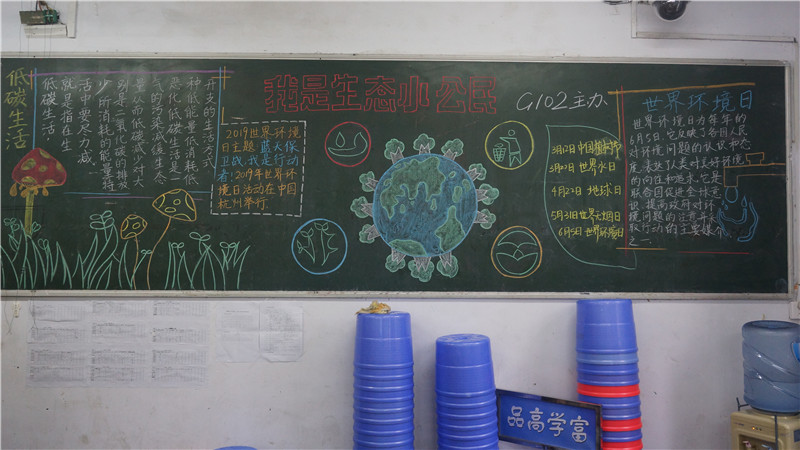 低碳生活
低碳生活
就是指在生
活中要尽力减
少所消耗的能量,特
别是二氧化碳的排放
量从而低碳,减少对大
气的污染,减缓生态
恶化。低碳生活是一
种低能量低消耗低
开支的生活方式
2019世界环境
日主题:蓝天保
卫战,我是行动
者!2019年世界环
境日活动在中国
杭州举行.
我是生态小公民
G102主办
3月12日 中国植树节
3月22日 世界水日
4月22日 地球日
5月31日 世界无烟日
6月5日 世界环境日
世界环境日
世界环境日为每年的
6月5日,它反映了各国人民
对环境问题的认识和态
度,表达了人类对美好环境
的向往和追求。它是
联合国促进全球意
识、提高政府对环
境问题的注意并采
取行动的主要媒介
之一.
品高学富